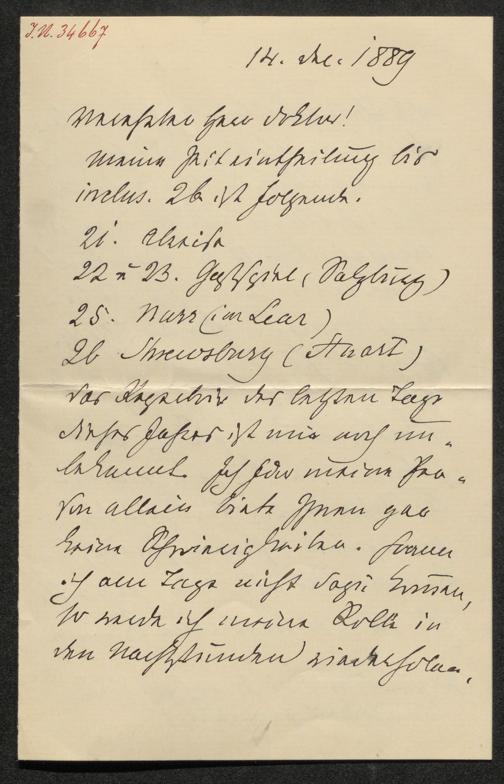 J.N. 34667
14. Dec. 1889
Verehrter Herr Doktor!
Meine Zeiteintheilung bis
inclus. 26 ist folgende.
21. Clarisse
22 u 23. Gastspiel (Salzburg)
25. Narr (im Lear)
26 Shrewsbury (Stuart)
Das Repertoir der letzten Tage
dieses Jahres ist mir noch un-
bekannt. Ich für meine Per-
son allein biete Ihnen gar
keine Schwierigkeiten. Wenn
ich am Tage nicht dazu komme,
so werde ich meine Rolle in
den Nachtstunden wiederholen,